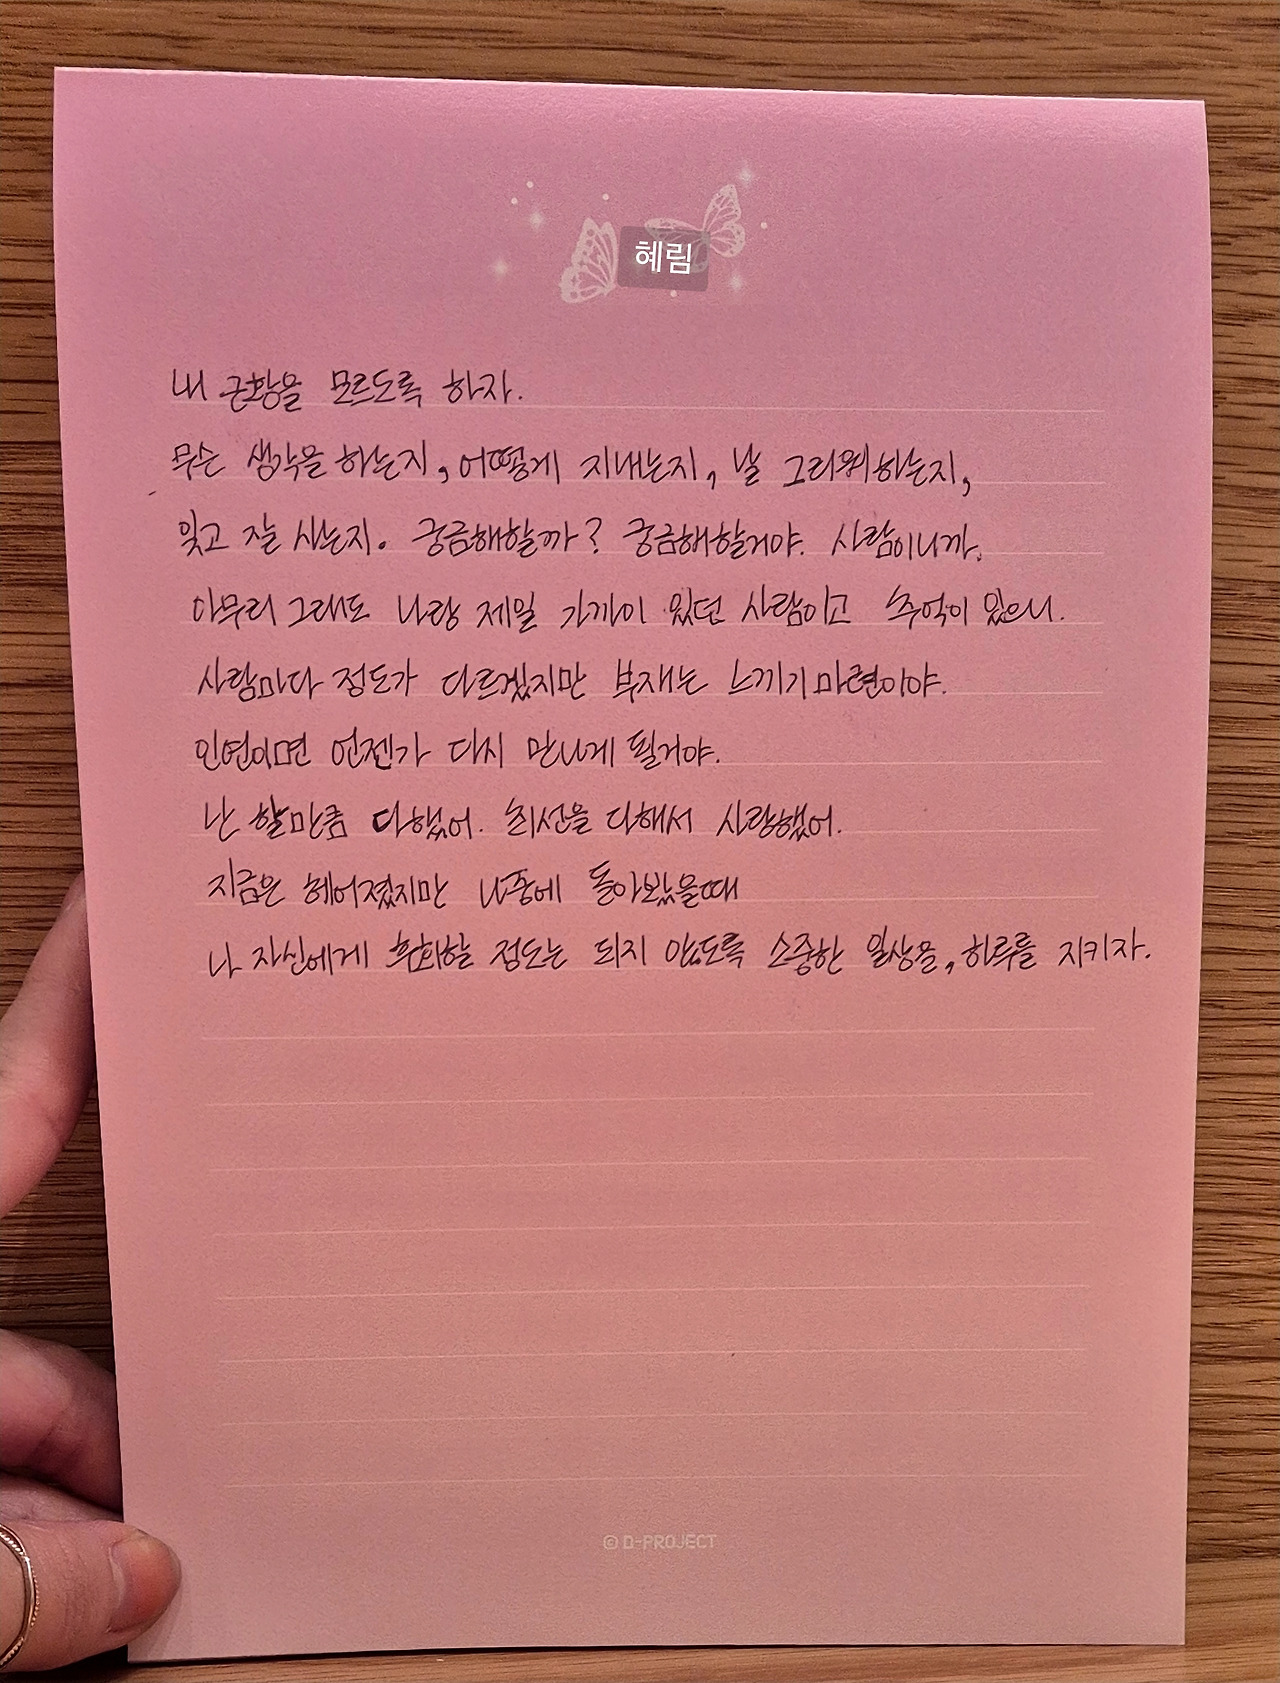 혜림
내 근황을 모르도록 하자.
무슨 생각을 하는지, 어떻게 지내는지, 날 그리워하는지,
잊고 잘 사는지. 궁금해할까? 궁금해할거야. 사람이니까.
아무리 그래도 나랑 제일 가까이 있던 사람이고 추억이 있으니.
사람마다 정도가 다르겠지만 부재는 느끼기 마련이야.
인연이면 언젠가 다시 만나게 될거야.
난 할만큼 다했어. 최선을 다해서 사랑했어.
지금은 헤어졌지만 나중에 돌아봤을때
나 자신에게 후회할 정도는 되지 않도록 소중한 일상을, 하루를 지키자.
© D-PROJECT